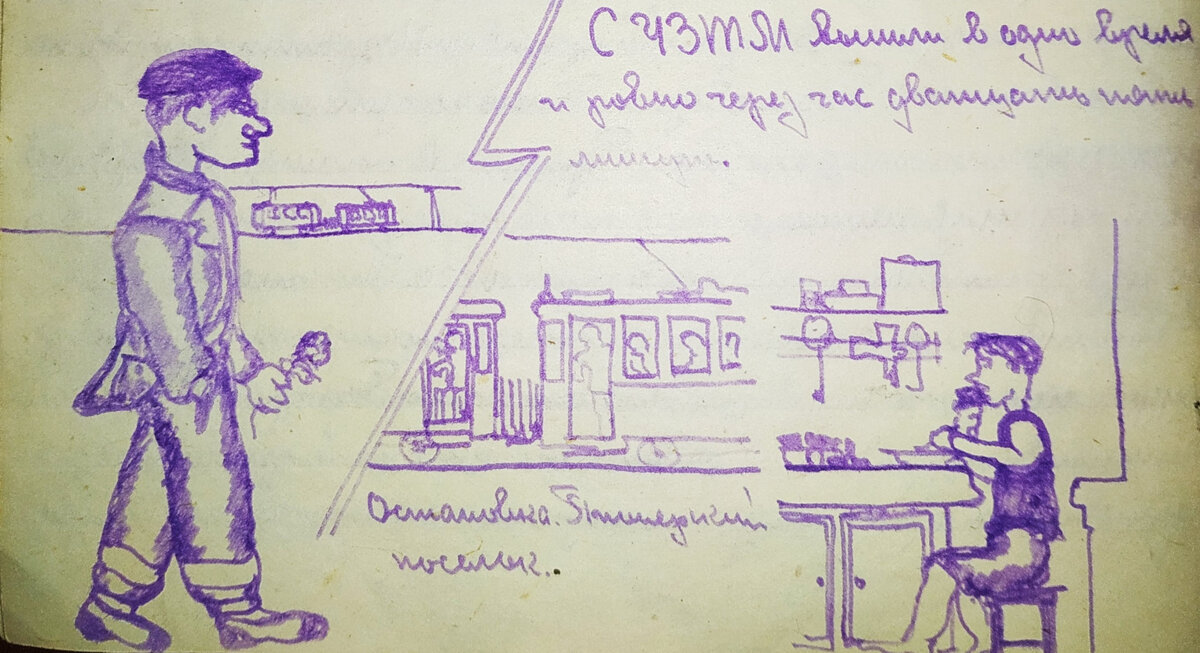 С ЧЗТМ вышли в одно время
и ровно через час двадцать пять
минут.
Остановка.
поселок.